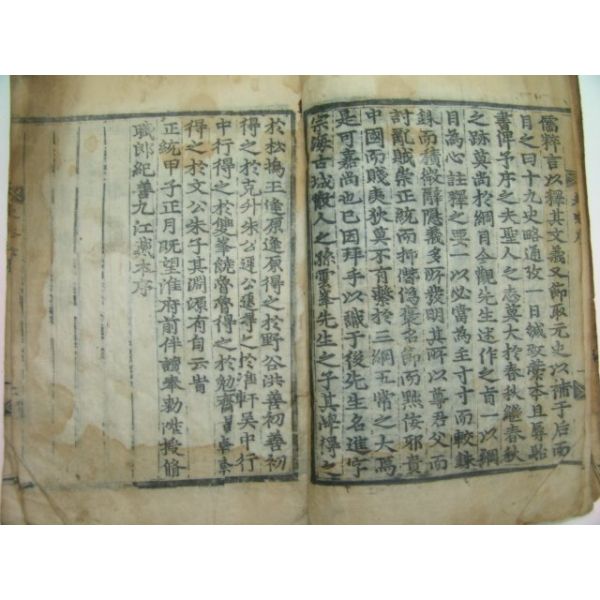 儒粹言以釋其文義又節取元史以補于后而
目之曰十九史略通攷一日緘致藁本且辱貽
書俾予序之夫聖人之志莫大於春秋繼春秋
之跡莫尚於綱目今觀先生述作之旨一以綱
目為心註釋之要一以必當為主寸寸而較銖
銖而積微辭隱義多所發明其所以尊君父而
討亂賊崇正統而抑僭偽褒名節而黜佞邪貴
中國而賤夷狄莫不有繫於三綱五常之大焉
是可嘉尚也已因拜手以識于後先生名進字
宗海古城散人之孫雲峯先生之子其學得之
於松塢王逢原逢原得之於野谷洪善初善初
得之於克升朱公遷公遷得之於準軒吳中行
中行得之於雙峯饒魯魯得之於勉齋
得之於文公朱子其淵源有自云旹
正統甲子正月旣望淮府前伴讀奉勅陞授脩
職郎紀善九江臧本序